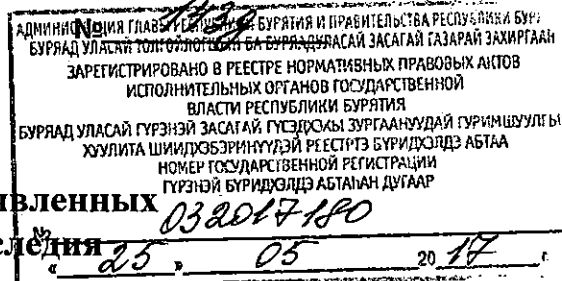 АДМИНИСТРАЦИЯ ГЛАВЫ РЕСПУБЛИКИ БУРЯТИЯ И ПРАВИТЕЛЬСТВА РЕСПУБЛИКИ БУР
№
БУРЯАД УЛАСАЙ ТОЛГОЙЛОГШЫН БА БУРЯАД УЛАСАЙ ЗАСАГАЙ ГАЗАРАЙ ЗАХИРГААН
ЗАРЕГИСТРИРОВАНО В РЕЕСТРЕ НОРМАТИВНЫХ ПРАВОВЫХ АКТОВ
ИСПОЛНИТЕЛЬНЫХ ОРГАНОВ ГОСУДАРСТВЕННОЙ
ВЛАСТИ РЕСПУБЛИКИ БУРЯТИЯ
БУРЯАД УЛАСАЙ ГҮРЭНЭЙ ЗАСАГАЙ ГҮСЭДХЭХЫ ЗУРГААНУУДАЙ ГУРИМШУУЛГЫ
ХУУЛИТА ШИИДХЭБЭРИНҮҮДЭЙ РЕЕСТРТЭ БҮРИДХЭЛДЭ АБТАА
НОМЕР ГОСУДАРСТВЕННОЙ РЕГИСТРАЦИИ
ГҮРЭНЭЙ БҮРИДХЭЛДЭ АБТАҺАН ДУГААР
явленных 032017180
следия « 25 » 05 20 17 г.